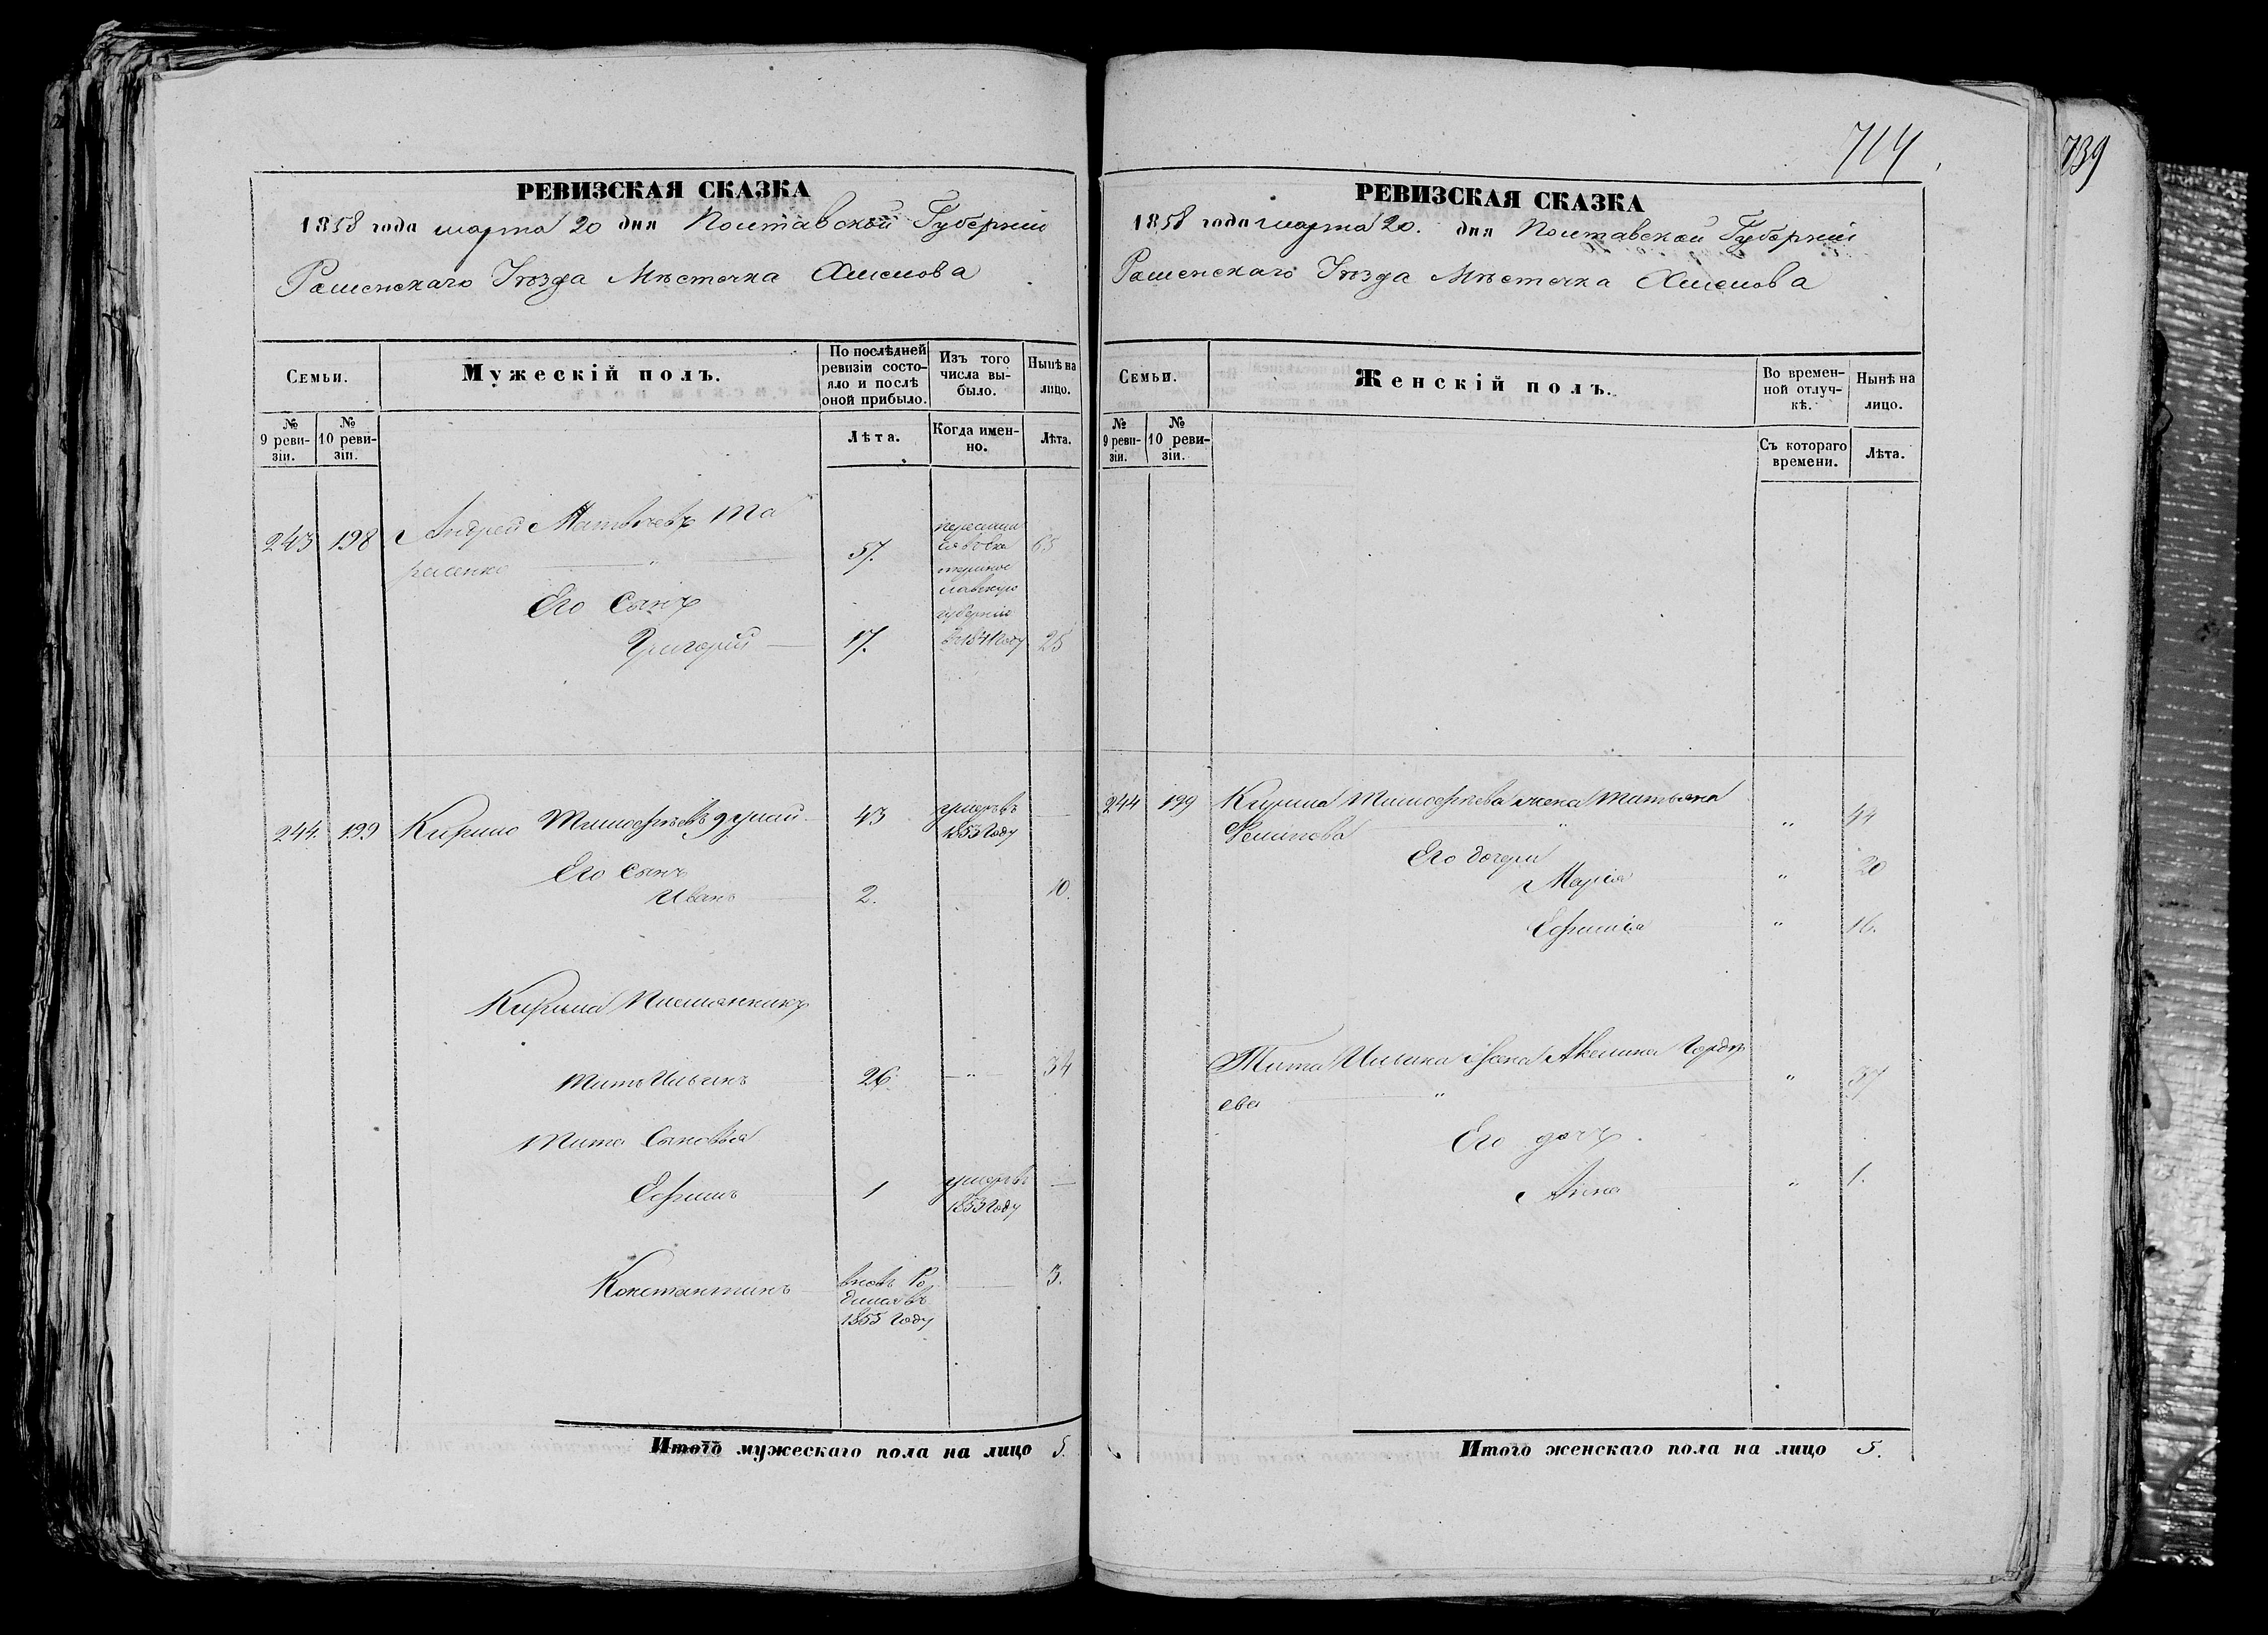 714
739
РЕВИЗСКАЯ СКАЗКА
1858 года марта 20 дня Полтавской Губерніи
Роменскаго Уѣзда Мѣстечка Хмелова
Семьи.
Мужескій полъ.
По послѣдней ревизіи состояло и послѣ оной прибыло.
Изъ того числа выбыло.
Нынѣ на лицо.
№ 9 ревизіи.
№ 10 ревизіи.
Лѣта.
Когда именно.
Лѣта.
243 198 Андрей Матвѣевъ Та
расенко 57. 65
Его Сынъ
Григорій 17. 25
губерніи
244. 199 Кирило Тимофѣевъ 43 умеръ въ
1853 Году
Его Сынъ
Иванъ 2. 10.
Кирила Племянникъ
Титъ Ильинъ 26. 34
Тита Сыновья
Ефимъ 1 умеръ въ
1853 Году
Константинъ вновь Ро 3.
дился въ
1855 Году
Итого мужескаго пола на лицо 5.
РЕВИЗСКАЯ СКАЗКА
1858 года марта 20. дня Полтавской Губерніи
Роменскаго Уѣзда Мѣстечка Хмелова
Семьи.
Женскій полъ.
Во временной отлучкѣ.
Нынѣ на лицо.
№ 9 ревизіи.
№ 10 ревизіи.
Съ котораго времени.
Лѣта.
244 199 Кирила Тимофѣева жена Татьяна
" 44
Его дочери
Марія " 20
Ефимія " 16.
Тита Ильина жена Акелина Гордѣ
ева " " 37
Его дочь
Анна " 1.
Итого женскаго пола на лицо 5.